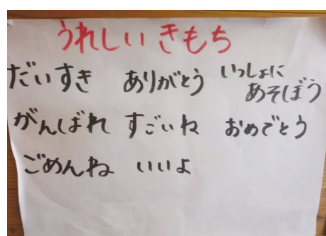 うれしいきもち
だいすき ありがとう いっしょにあそぼう
がんばれ すごいね おめでとう
ごめんね いいよ